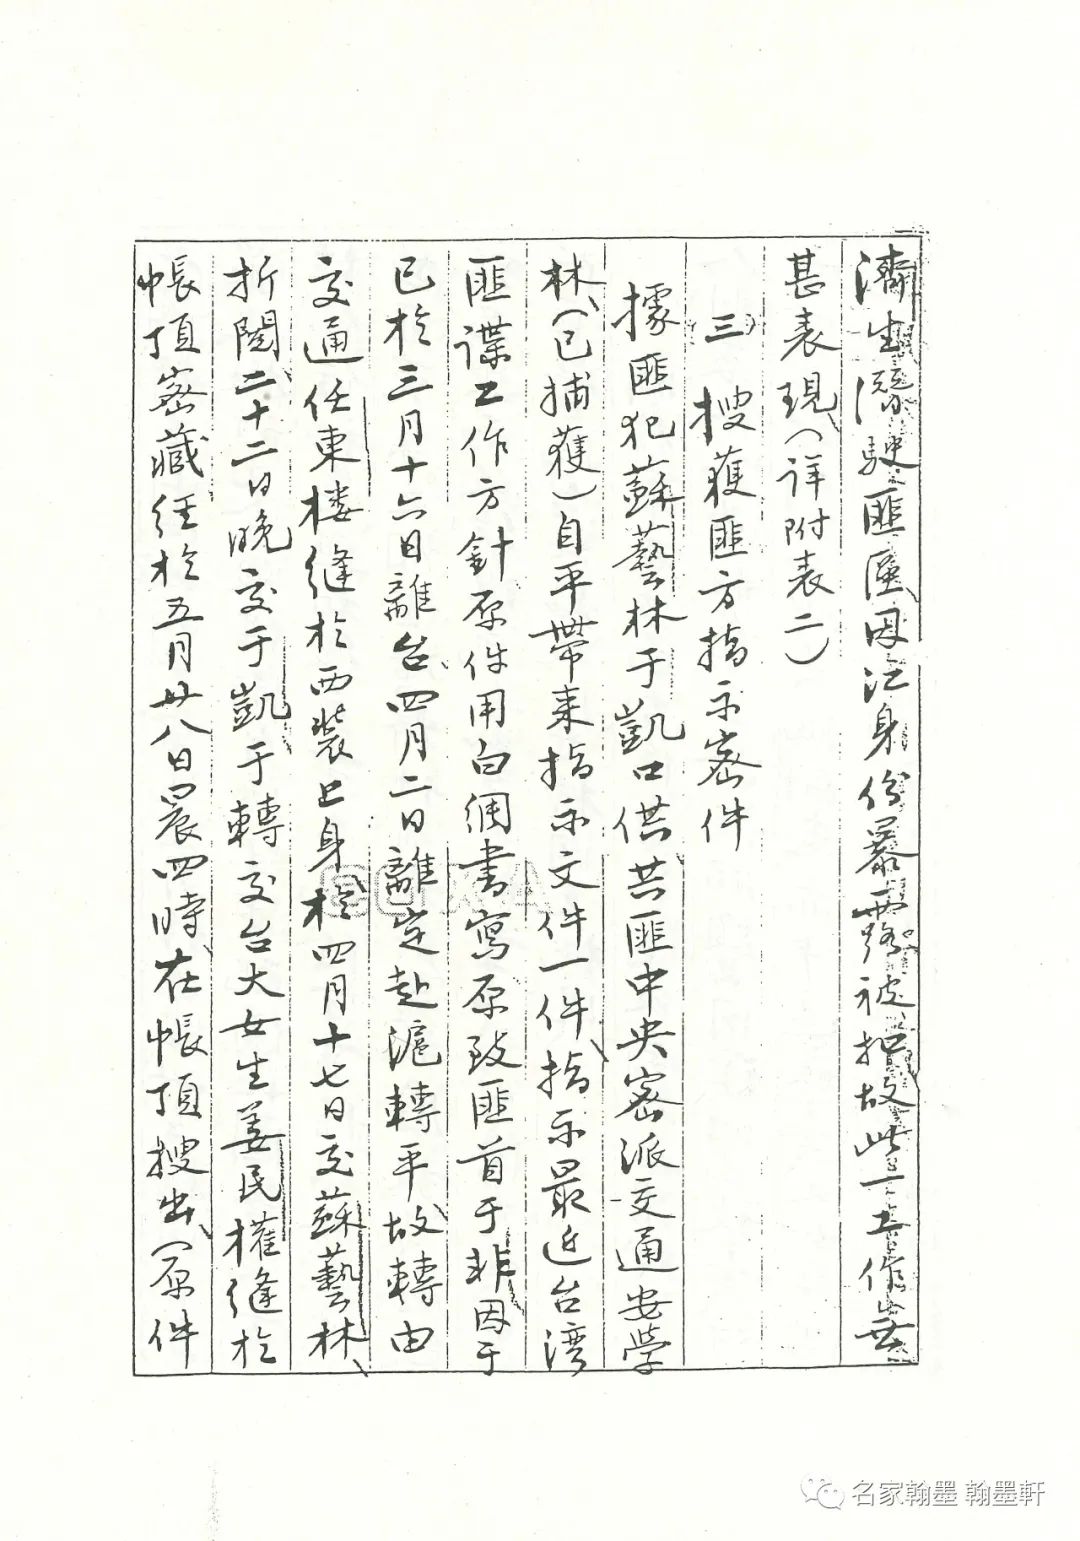 濟生潛駛匪區因江身份暴露被扣故此一工作無
甚表現（详附表二）
三 搜獲匪方指示密件
據匪犯蘇藝林于凱口供共匪中央密派交通安学
林（已捕獲）自平帶来指示文件一件指示最近台湾
匪諜工作方針原件用白綢書寫原致匪首于非因于
已於三月十六日離台四月二日離定赴滬轉平故轉由
交通任東楼縫於西裝上身於四月十七日交蘇藝林
折閱二十二日晚交于凱于轉交台大女生姜民權縫於
帳頂密藏经於五月廿八日晨四時在帳頂搜出（原件
名家翰墨 翰墨軒